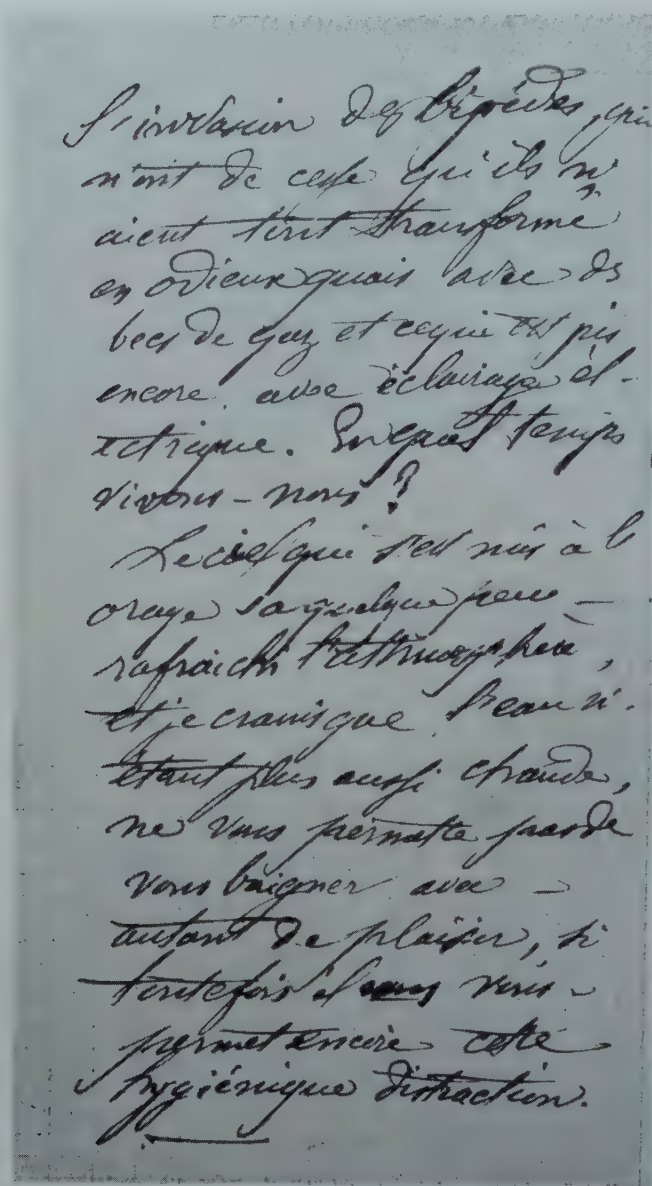 l'invasion des bipèdes, qui
n'ont de cesse qu'ils n'
aient tout transformé
en odieux quais avec des
becs de gaz et ce qui est pis
encore. avec éclairage él-
ectrique. En quel temps
vivons-nous ?
Le ciel qui s'est mis à l'
orage a quelque peu -
rafraichi l'athmosphère,
et je crains que l'eau n'-
étant plus aussi chaude,
ne vous permette pas de
vous baigner avec -
autant de plaisir, si
toutefois il vous -
permet encore cette
hygiénique distraction.